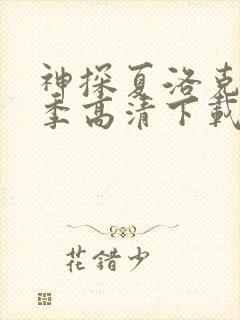 神探夏洛克
季高清下载
花错少